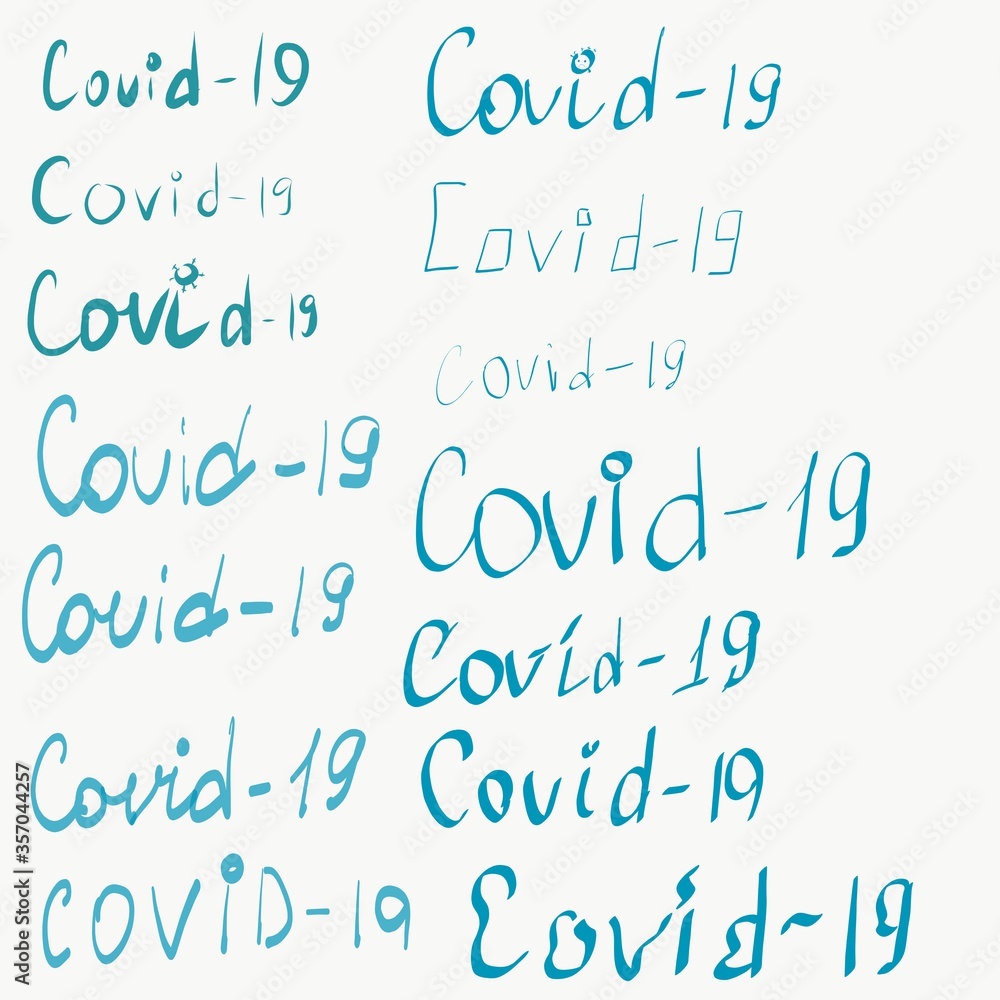 Covid-19
Covid-19
Covid-19
Covid-19
Covid-19
Covid-19
COViD-19
Covid-19
Covid-19
Covid-19
Covid-19
Covid-19
Covid-19
Covid-19
Adobe Stock | #357044257